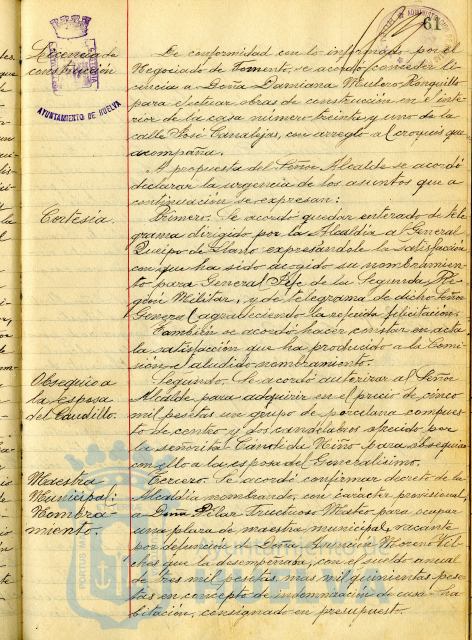 61
AYUNTAMIENTO DE HUELVA
Licencia de
construcción
De conformidad con lo informado por el
Negociado de Fomento, se acordó conceder li
cencia a Doña Damiana Mulero Ronquillo
para efectuar obras de construcción en el inte
rior de la casa número treinta y uno de la
calle José Canalejas, con arreglo al croquis que
acompaña.
A propuesta del Señor Alcalde se acordó
declarar la urgencia de los asuntos que a
continuación se expresan:
Cortesía.
Primero. Se acordó quedar enterado de tele
grama dirigido por la Alcaldía al General
Queipo de Llano expresándole la satisfacción
con que ha sido acogido su nombramien
to para General Jefe de la Segunda Re
gión Militar, y de telegrama de dicho Señor
General agradeciendo la referida felicitación.
También se acordó hacer constar en acta
la satisfacción que ha producido a la Comi
sión el aludido nombramiento.
Obsequio a
la esposa
del Caudillo.
Segundo. Se acordó autorizar al Señor
Alcalde para adquirir en el precio de cinco
mil pesetas un grupo de porcelana compues
to de centro y dos candelabros ofrecido por
la señorita Candida Niño para obsequiar
con ello a la esposa del Generalísimo.
Maestra
Municipal:
Nombra
miento.
Tercero. Se acordó confirmar decreto de la
Alcaldía nombrando, con carácter provisional,
a Doña Pilar Fructuoso para ocupar
una plaza de maestra municipal, vacante
por defunción de Doña Moreno
ches que la desempeñaba, con el sueldo anual
de tres mil pesetas, mas mil quinientas pese
tas en concepto de indemnización de casa-ha
bitación, consignado en presupuesto.
Ayuntamiento de
HUELVA